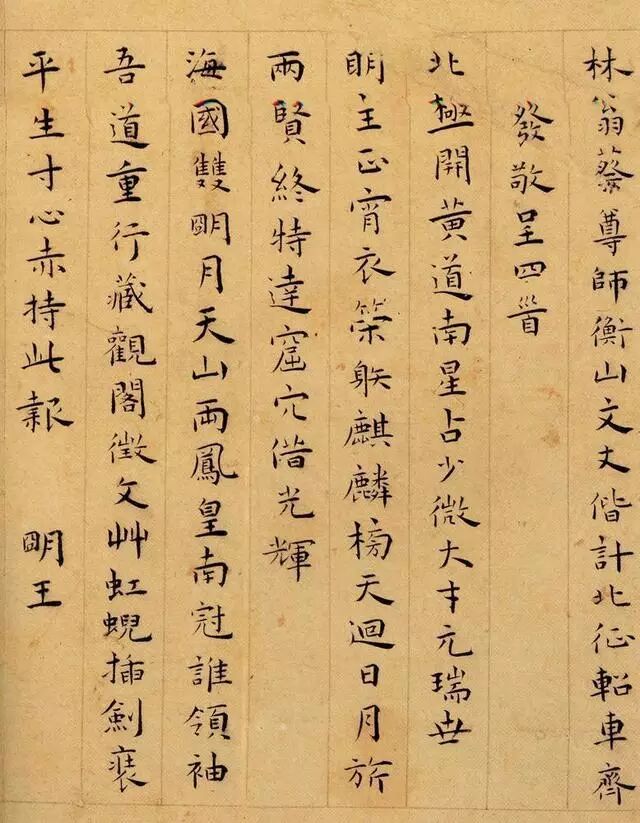 林翁蔡尊師衡山文丈偕計北征軺車齊
發敬呈四首
北極開黃道南星占少微大才元瑞世
明主正宵衣榮朕麒麟榜天迴日月旂
兩賢終特達窟穴借光輝
海國雙明月天山兩鳳皇南冠誰領袖
吾道重行藏觀閣徵文艸虹蜺插劍裝
平生寸心赤持此報 明王